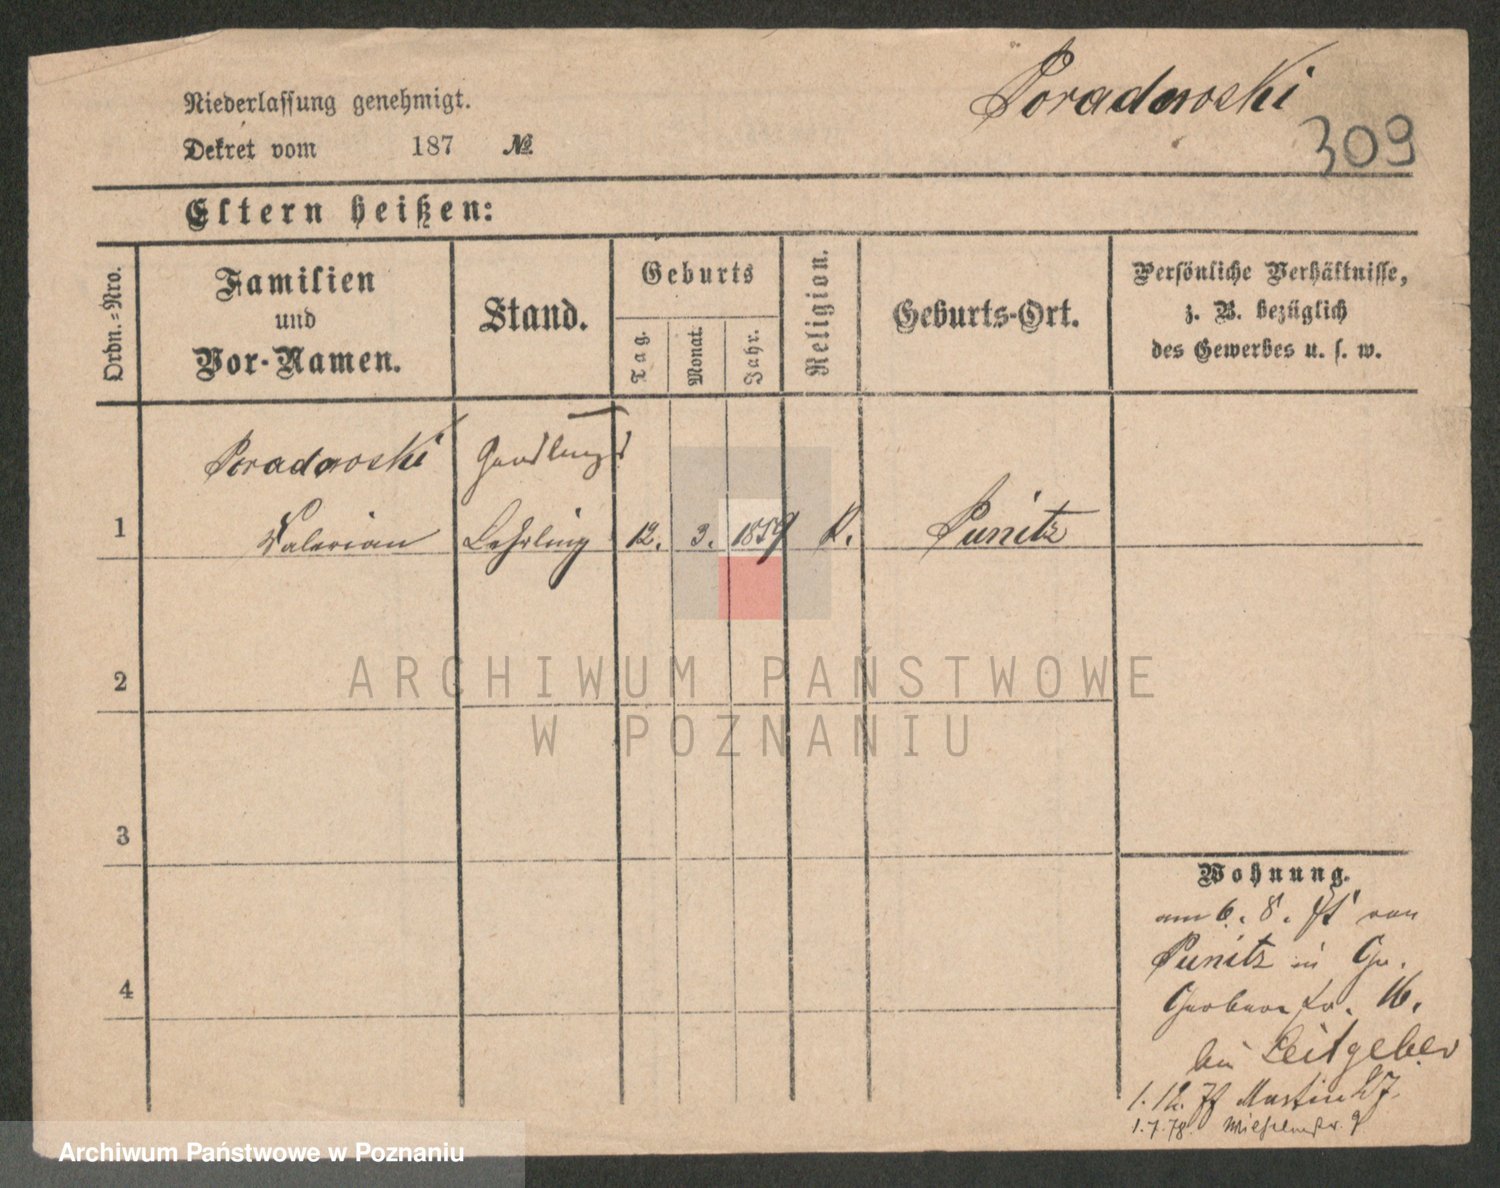 Poradowski
309
Niederlassung genehmigt.
Dekret vom 187 №
Eltern heißen:
Ordn.=Nro.
Familien
und
Vor-Namen.
Stand.
Geburts
Tag.
Monat.
Jahr.
Religion.
Geburts-Ort.
Persönliche Verhältnisse,
z. B. bezüglich
des Gewerbes u. s. w.
Poradowski Handlungs
1 Valerian Lehrling 12. 3. 1859 K. Punitz
2
3
4
Wohnung.
am 6. 8. 77 von
Punitz in Gr.
Gerberstr. 16.
bei Leitgeber
1. 12. 77 Martin 27
1.7.78. Wilhelmstr. 9
ARCHIWUM PAŃSTWOWE
W POZNANIU
Archiwum Państwowe w Poznaniu